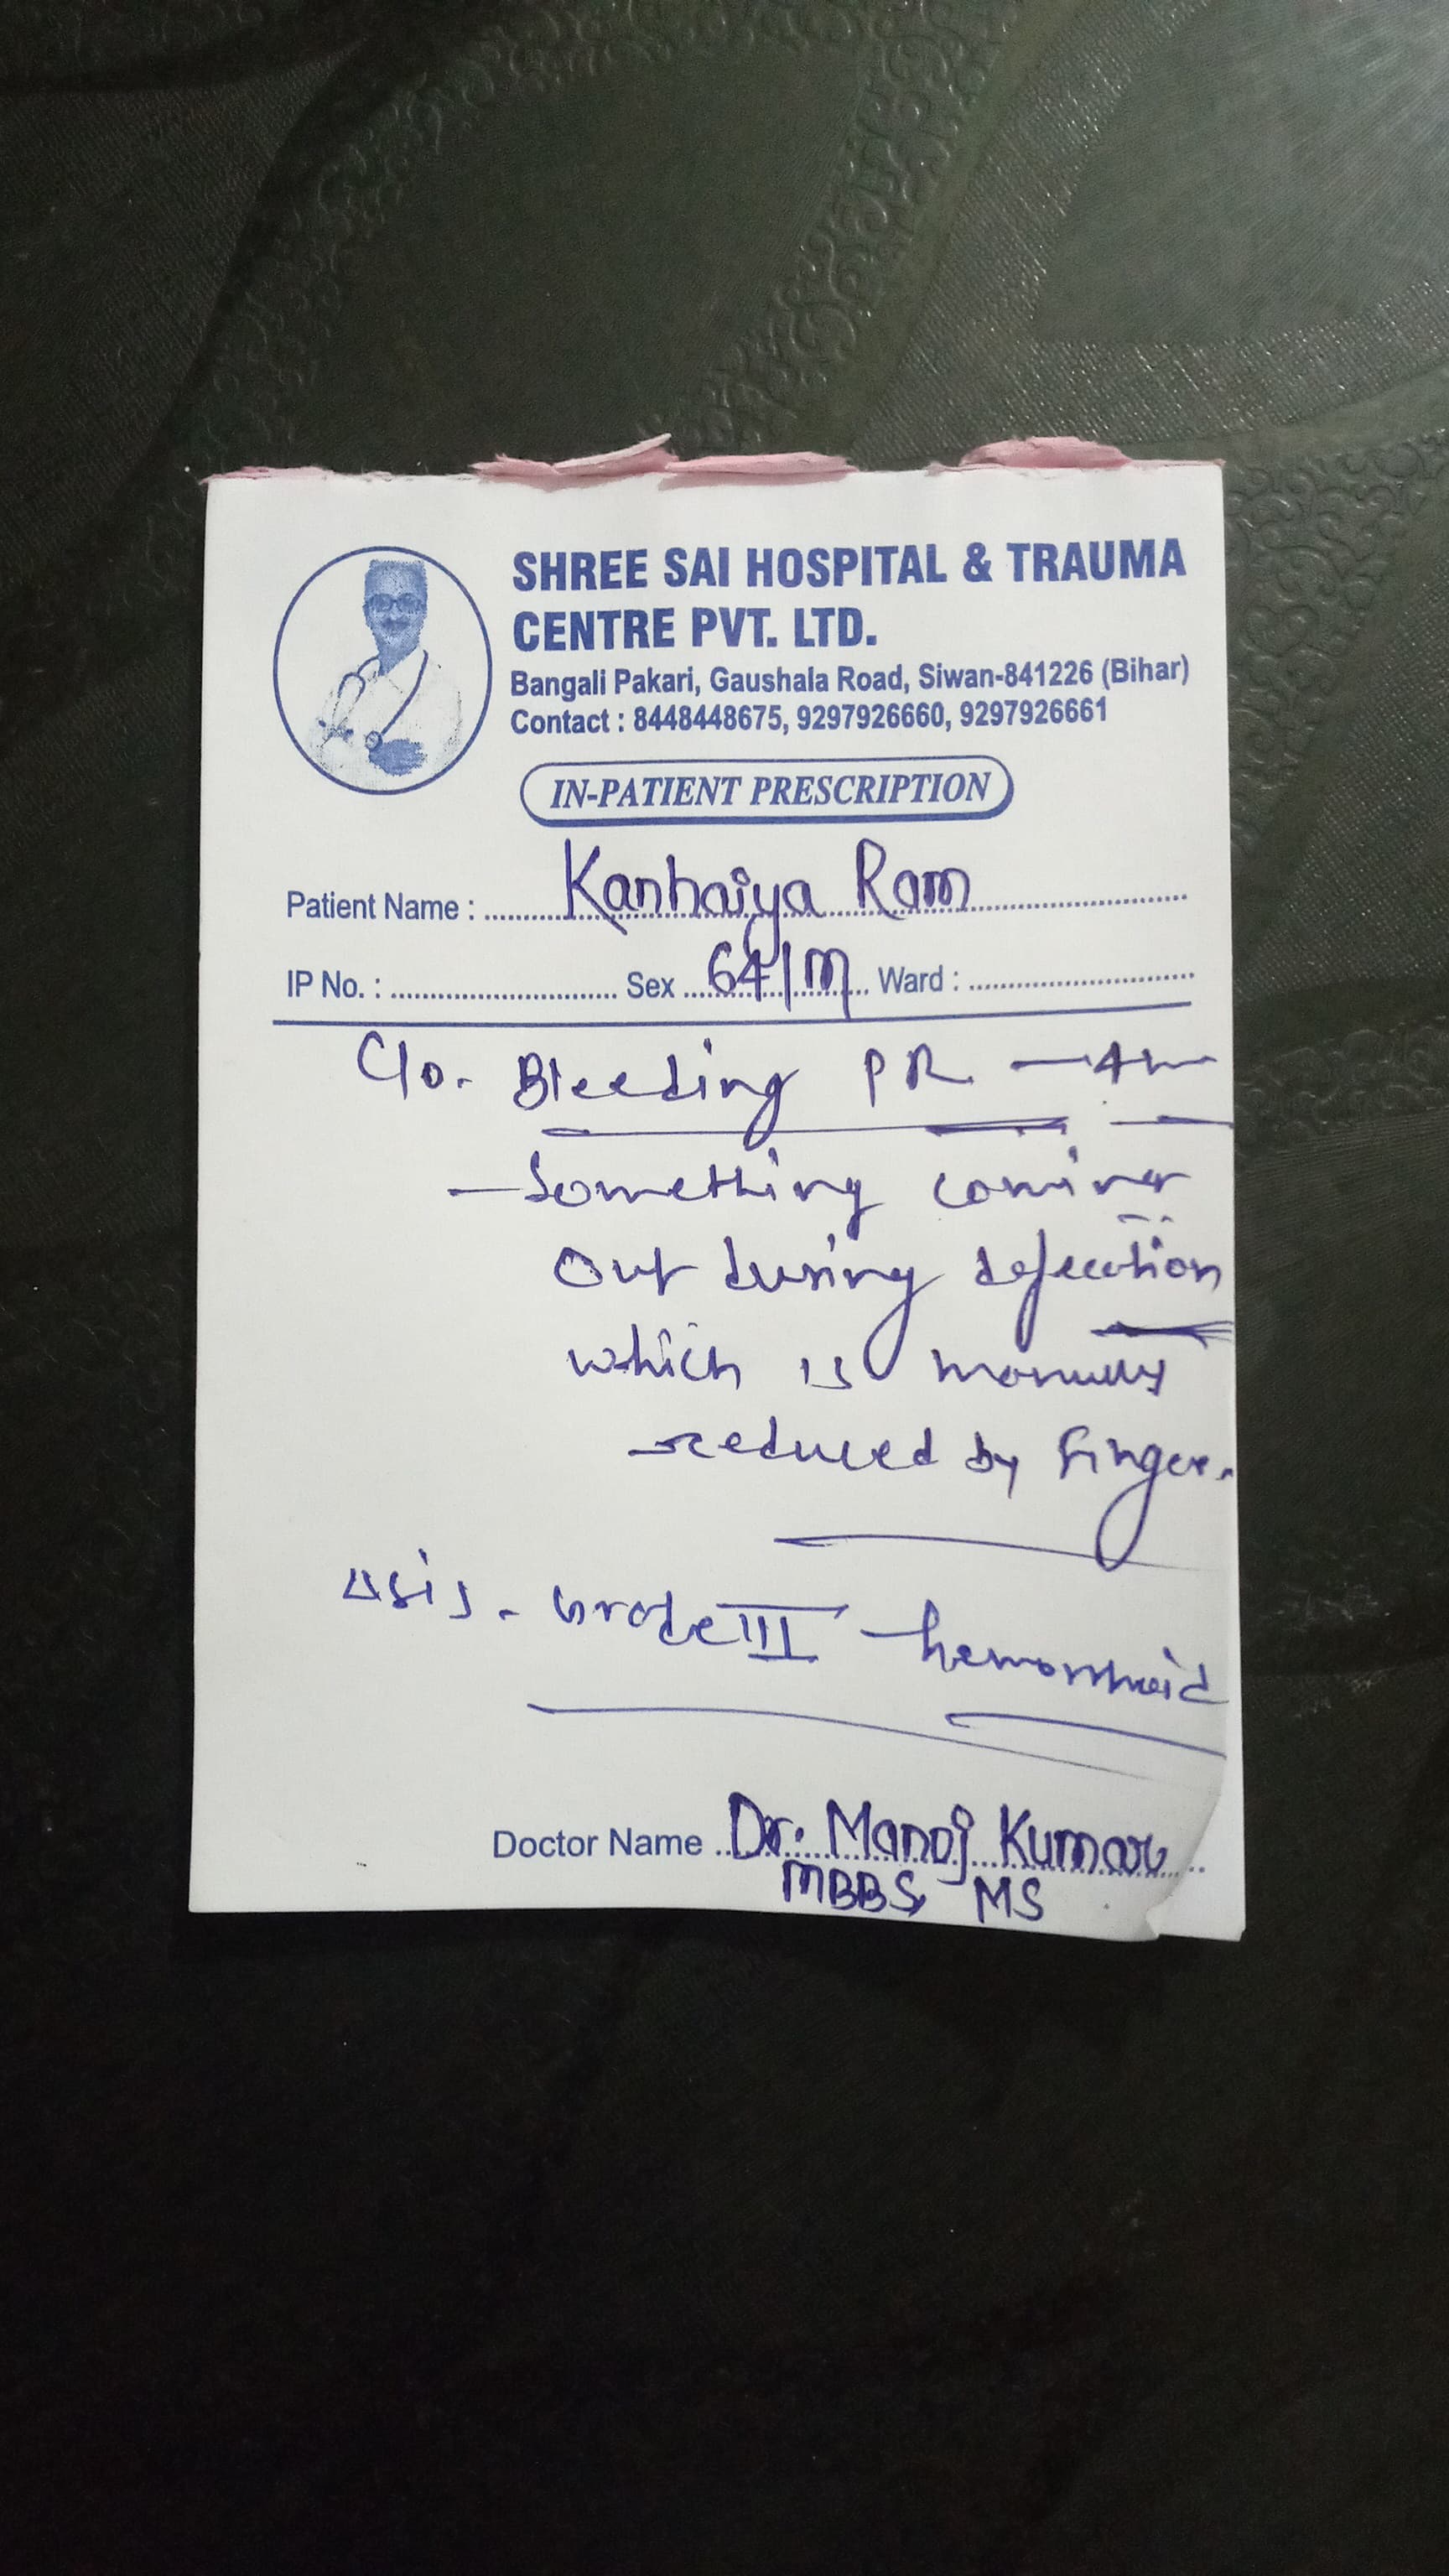 SHREE SAI HOSPITAL & TRAUMA
CENTRE PVT. LTD.
Bangali Pakari, Gaushala Road, Siwan-841226 (Bihar)
Contact : 8448448675, 9297926660, 9297926661
IN-PATIENT PRESCRIPTION
Patient Name : Kanhaiya Ram
IP No. : Sex 64/M Ward :
C/o. Bleeding PR
- Something coming
out during defecation
which is manually
reduced by finger.
Grade III - hemorrhoid
Doctor Name Dr. Manoj Kumar
MBBS, MS